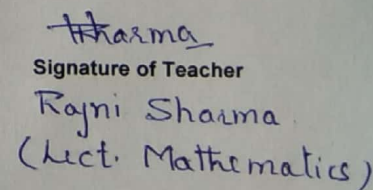 Sharma
Signature of Teacher
Rajni Sharma
(Lect. Mathematics)